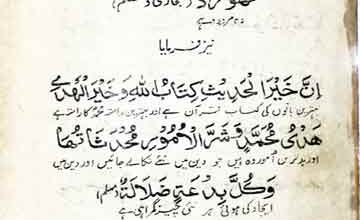 نیز فرمایا
اِنَّ خَیْرَ الْحَدِیْثِ کِتَابُ اللّٰهِ وَخَیْرَ الْهَدْیِ
بہترین باتوں کی کتاب قرآن ہے اور بہترین راستہ محمد کا راستہ ہے
هَدْیُ مُحَمَّدٍ وَشَرَّ الْاُمُوْرِ مُحْدَثَاتُهَا
اور بدترین امور وہ ہیں جو دین میں نئے نکالے جائیں اور دین میں
وَکُلَّ بِدْعَةٍ ضَلَالَةٌ (مسلم)
ایجاد کی ہوئی ہر نئی چیز گمراہی ہے